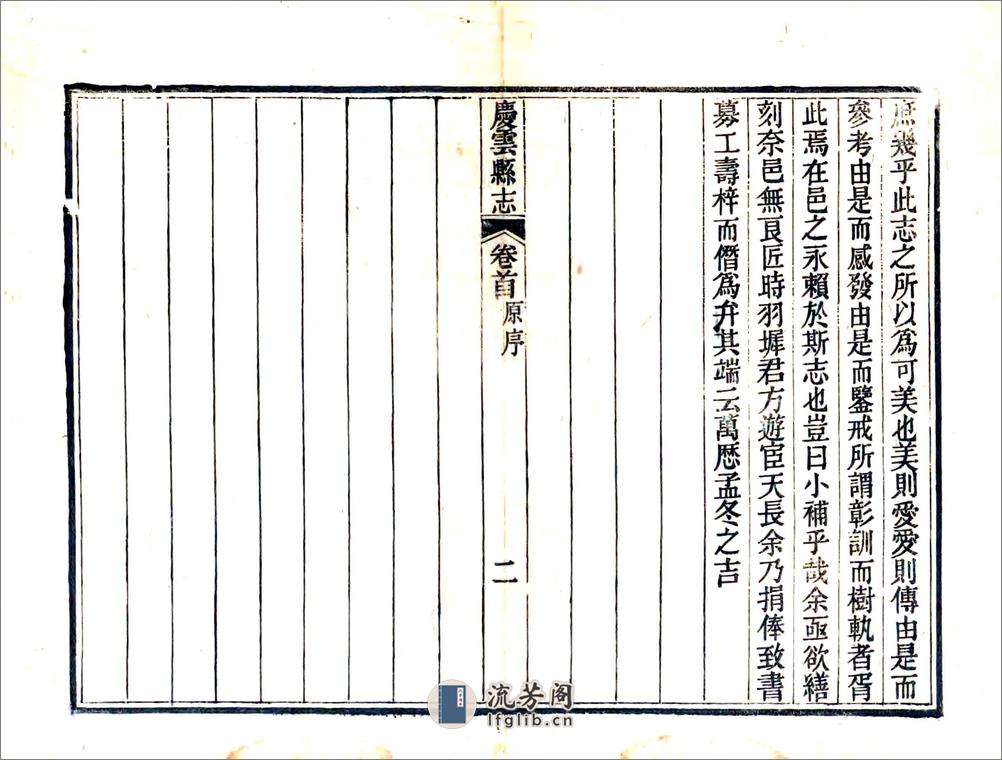 庶幾乎此志之所以爲可美也美則愛愛則傳由是而
參考由是而感發由是而鑒戒所謂彰訓而樹軌者胥
此焉在邑之永賴於斯志也豈曰小補乎哉余亟欲繕
刻奈邑無良匠時羽墀君方遊宦天長余乃捐俸致書
募工壽梓而僭爲弁其端云萬歷孟冬之吉
慶雲縣志
卷首
原序
二
流芳阁
lfglib.cn